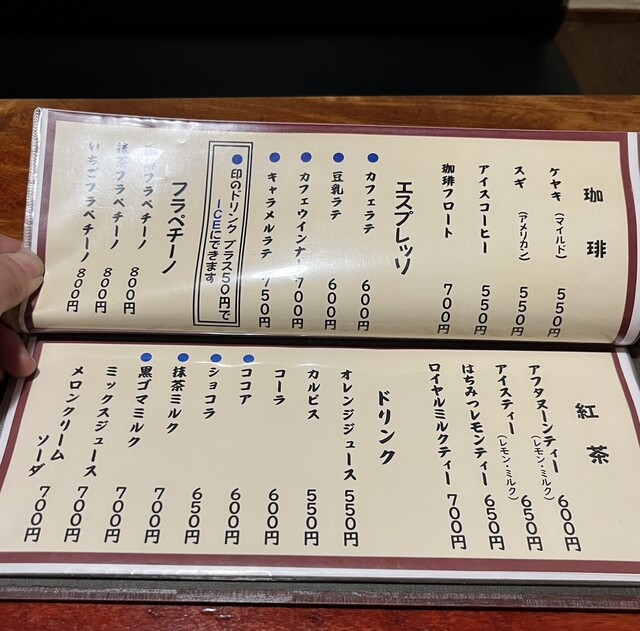 珈琲
ケヤキ（マイルド） 550円
スギ（アメリカン） 550円
アイスコーヒー 550円
珈琲フロート 700円
エスプレッソ
●カフェラテ 600円
●豆乳ラテ 600円
●カフェウインナー 700円
●キャラメルラテ 750円
●印のドリンク プラス50円で
ICEにできます
フラペチーノ
フラペチーノ 800円
抹茶フラペチーノ 800円
いちごフラペチーノ 800円
紅茶
アフタヌーンティー（レモン・ミルク） 600円
アイスティー（レモン・ミルク） 650円
はちみつレモンティー 650円
ロイヤルミルクティー 700円
ドリンク
オレンジジュース 550円
カルピス 550円
コーラ 600円
●ココア 600円
●ショコラ 650円
●抹茶ミルク 700円
●黒ゴマミルク 700円
ミックスジュース 700円
メロンクリームソーダ 700円